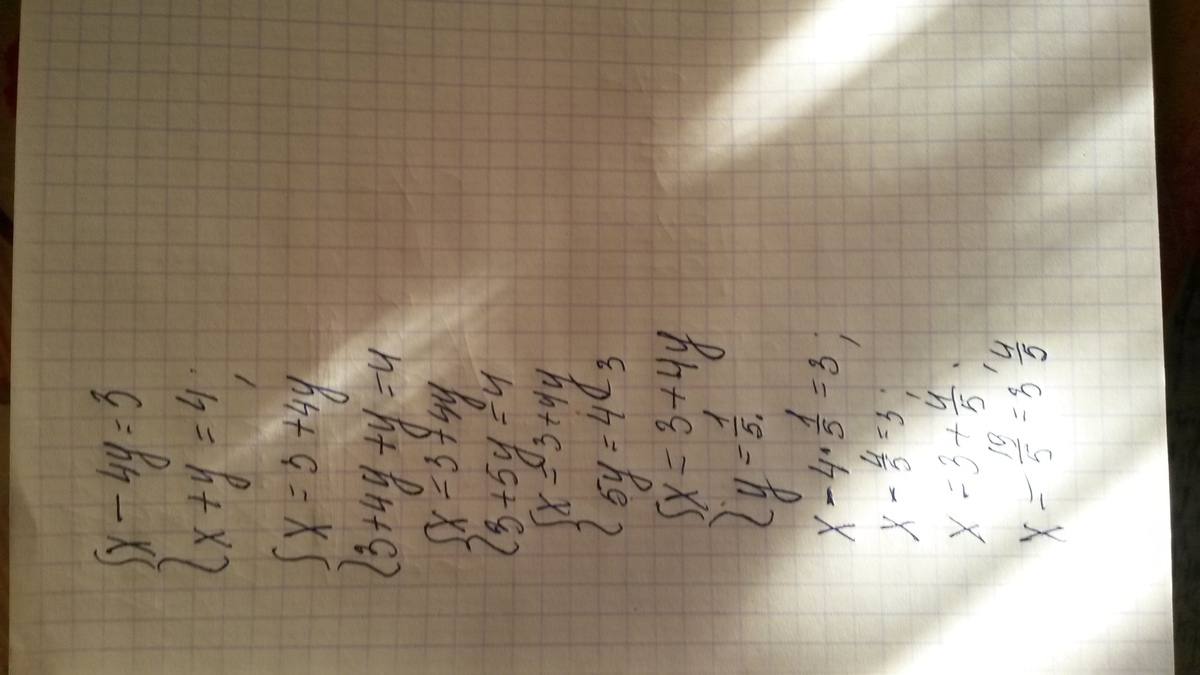 {x - 4y = 3
{x + y = 4;
{x = 3 + 4y
{3 + 4y + y = 4
{x = 3 + 4y
{3 + 5y = 4
{x = 3 + 4y
{5y = 4 - 3
{x = 3 + 4y
{y = 1/5.
x - 4 · 1/5 = 3;
x - 4/5 = 3;
x = 3 + 4/5;
x = 19/5 = 3 4/5